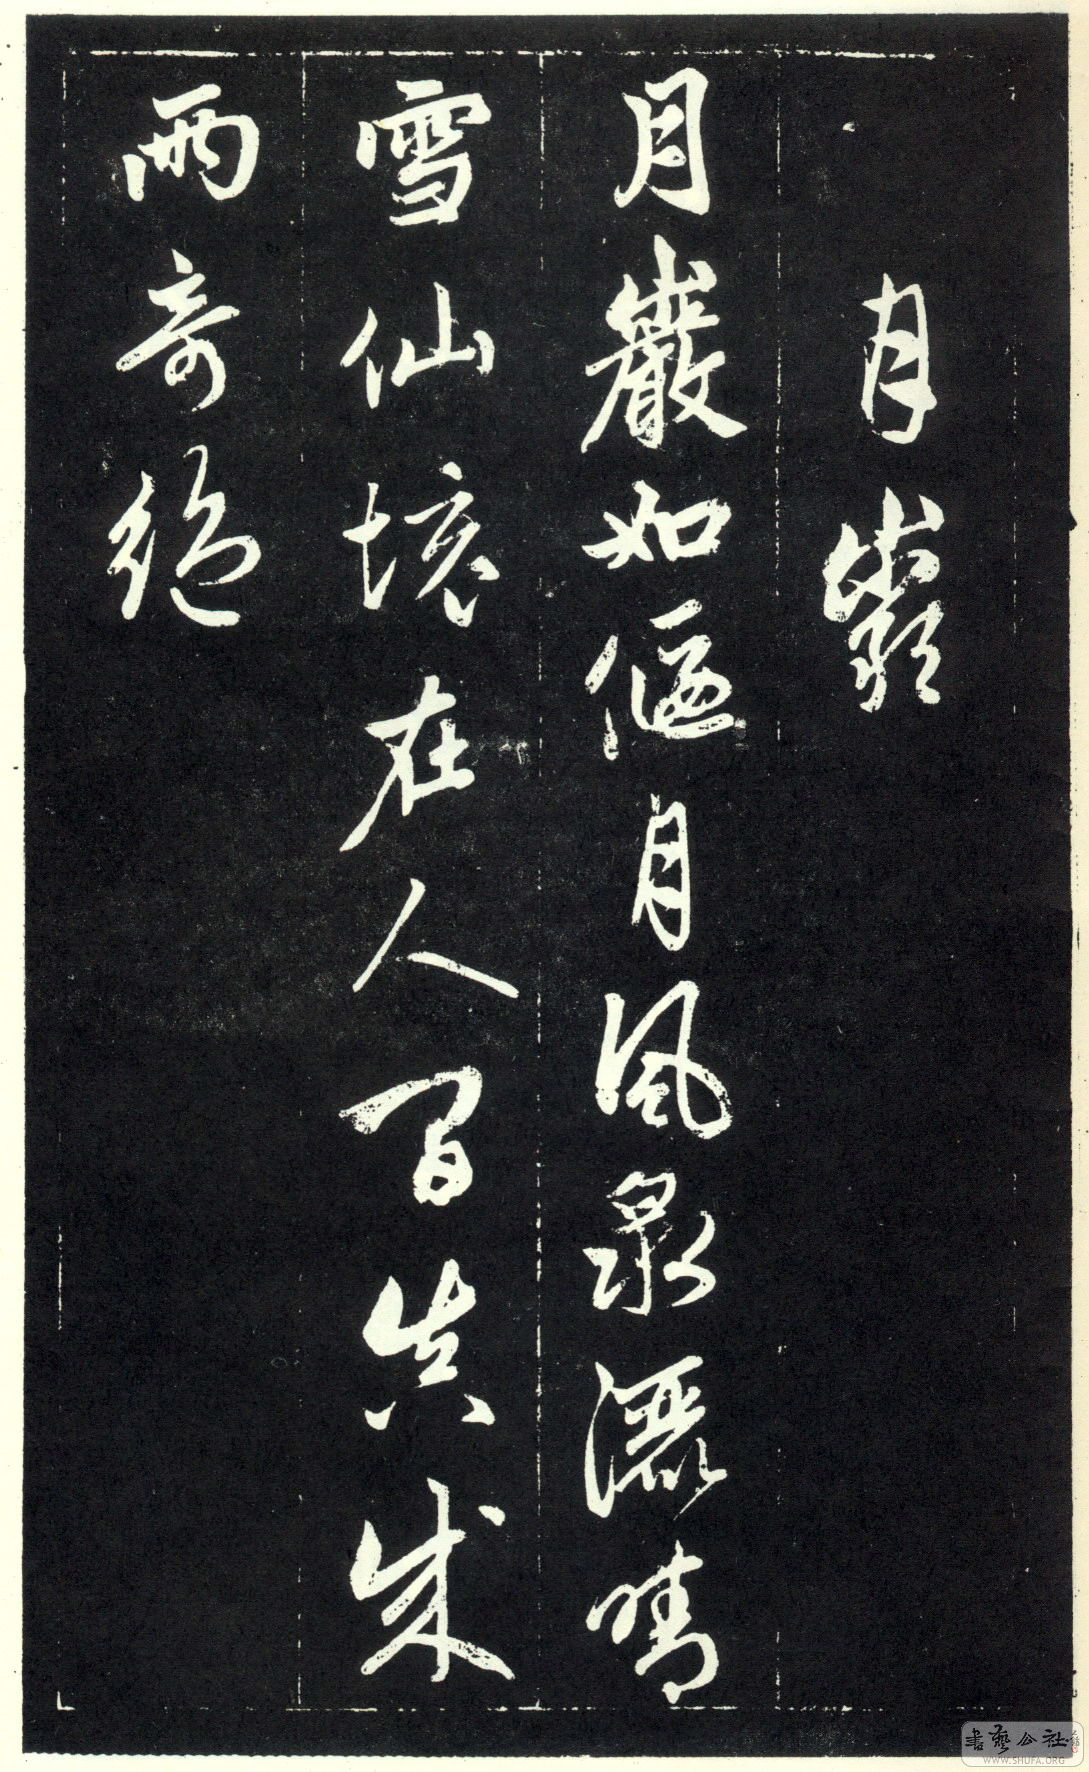 月巖
月巖如偃月風泉灑晴
雪仙境在人間真成
兩奇絕
書藝公社
WWW.SHUFA.ORG